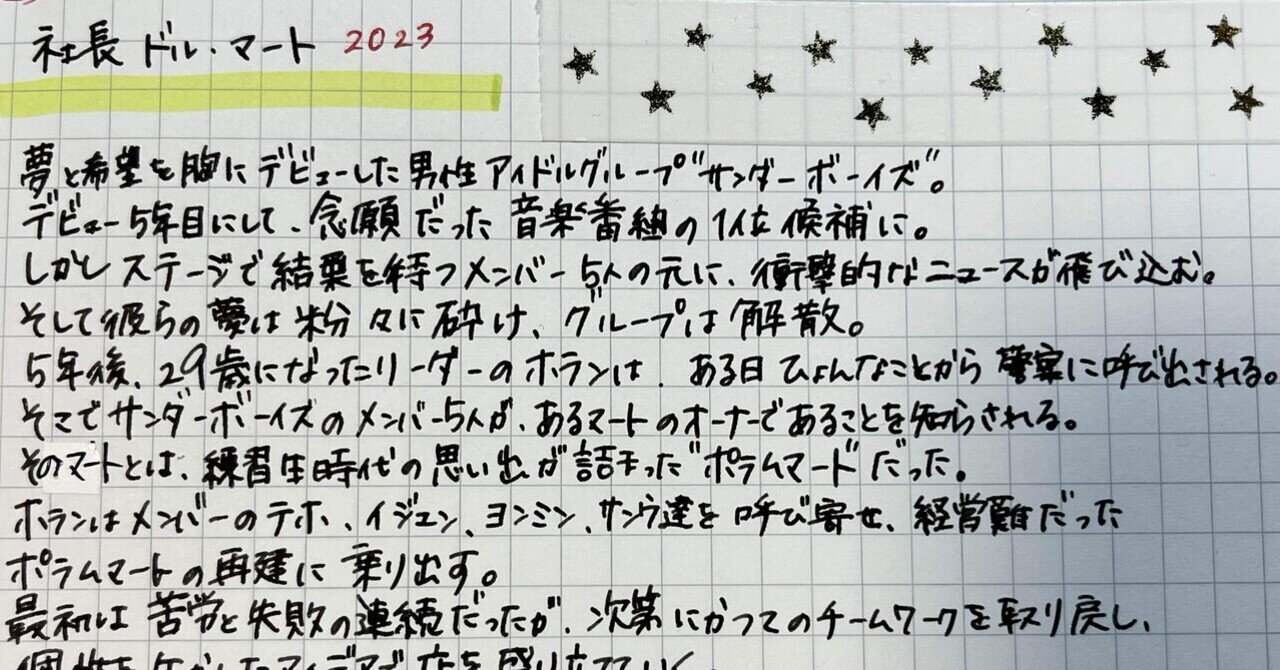 社長ドル・マート 2023
夢と希望を胸にデビューした男性アイドルグループ"サンダーボーイズ"。
デビュー5年目にして、念願だった音楽番組の1位候補に。
しかしステージで結果を待つメンバー5人の元に、衝撃的なニュースが飛び込む。
そして彼らの夢は粉々に砕け、グループは解散。
5年後、29歳になったリーダーのホランは、ある日ひょんなことから警察に呼び出される。
そこでサンダーボーイズのメンバー5人が、あるマートのオーナーであることを知らされる。
そのマートとは、練習生時代の思い出が詰まった"ポラムマート"だった。
ホランはメンバーのテホ、イジュン、ヨンミン、サンウ達を呼び寄せ、経営難だった
ポラムマートの再建に乗り出す。
最初は苦労と失敗の連続だったが、次第にかつてのチームワークを取り戻し、
個性を生かしたアイデアで店を盛り立てていく。